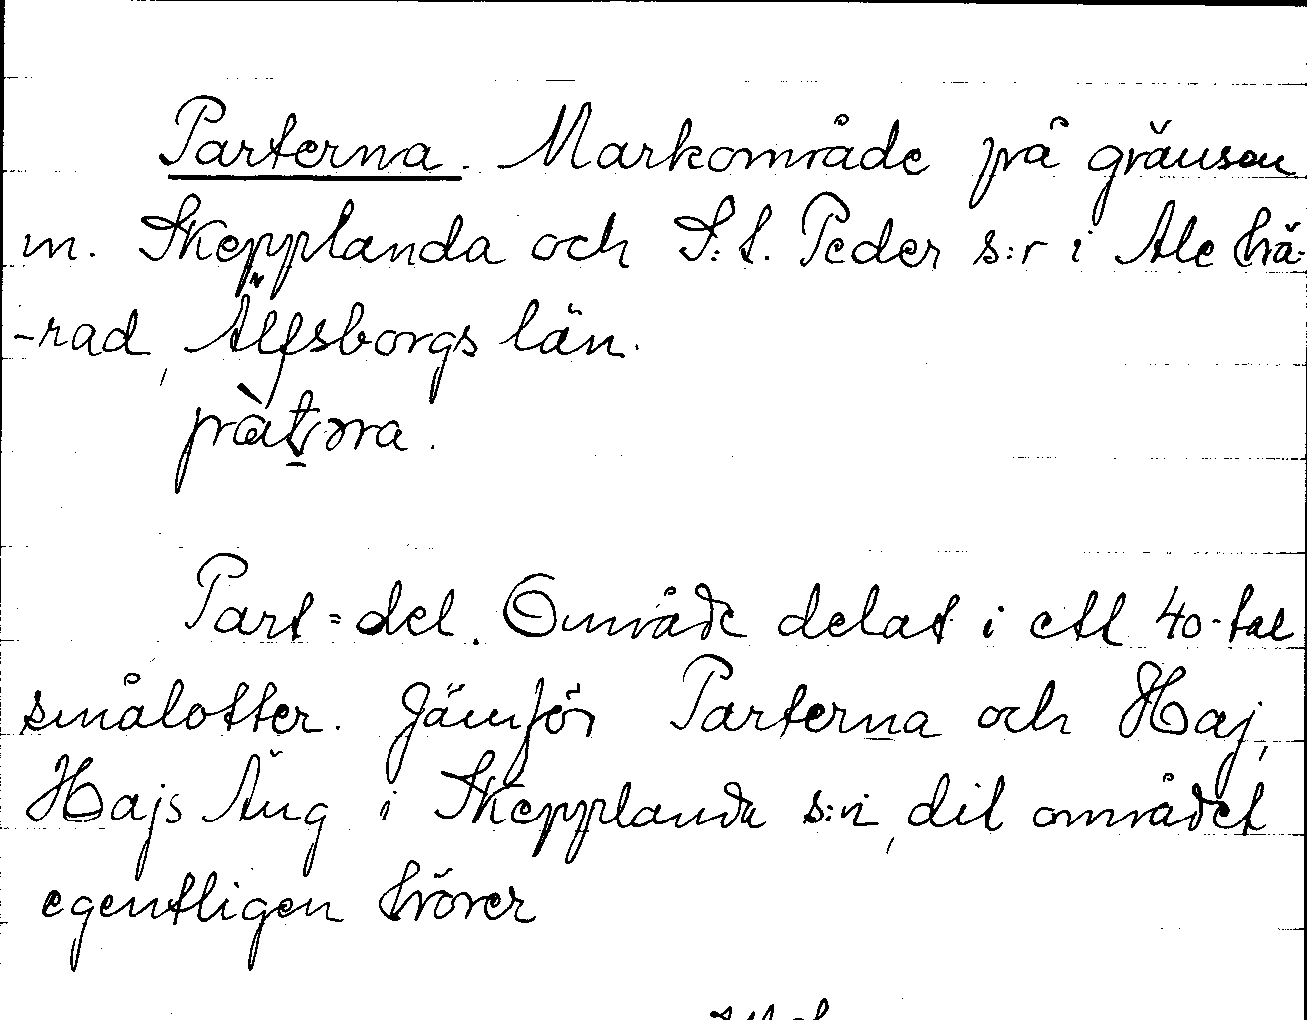 Parterna. Markområde på gränsen
m. Skepplanda och S:t. Peder s:r i Ale hä-
-rad, Älfsborgs län.
Part = del. Område delat i ett 40-tal
smålotter. Jämför Parterna och Haj,
Hajs Äng i Skepplanda s:n, dit området
egentligen hörer